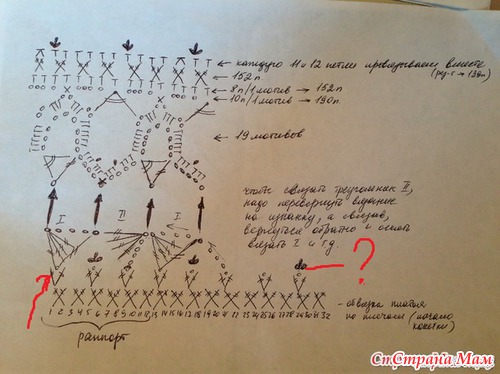 каждую 11 и 12 петлю провязываем вместе
(рез-т → 139п)
152п
8п/1 мотив → 152п
10п/1 мотив → 190п
19 мотивов
чтобы связать треугольник II,
надо перевернуть вязание
на изнанку, а связав,
вернуться обратно и опять
вязать I и т.д.
I II I
?
обвязка платья
по плечам (начало
кокетки)
1 2 3 4 5 6 7 8 9 10 11 12 13 14 15 16 17 18 19 20 21 22 23 24 25 26 27 28 29 30 31 32
раппорт
Страна Мам